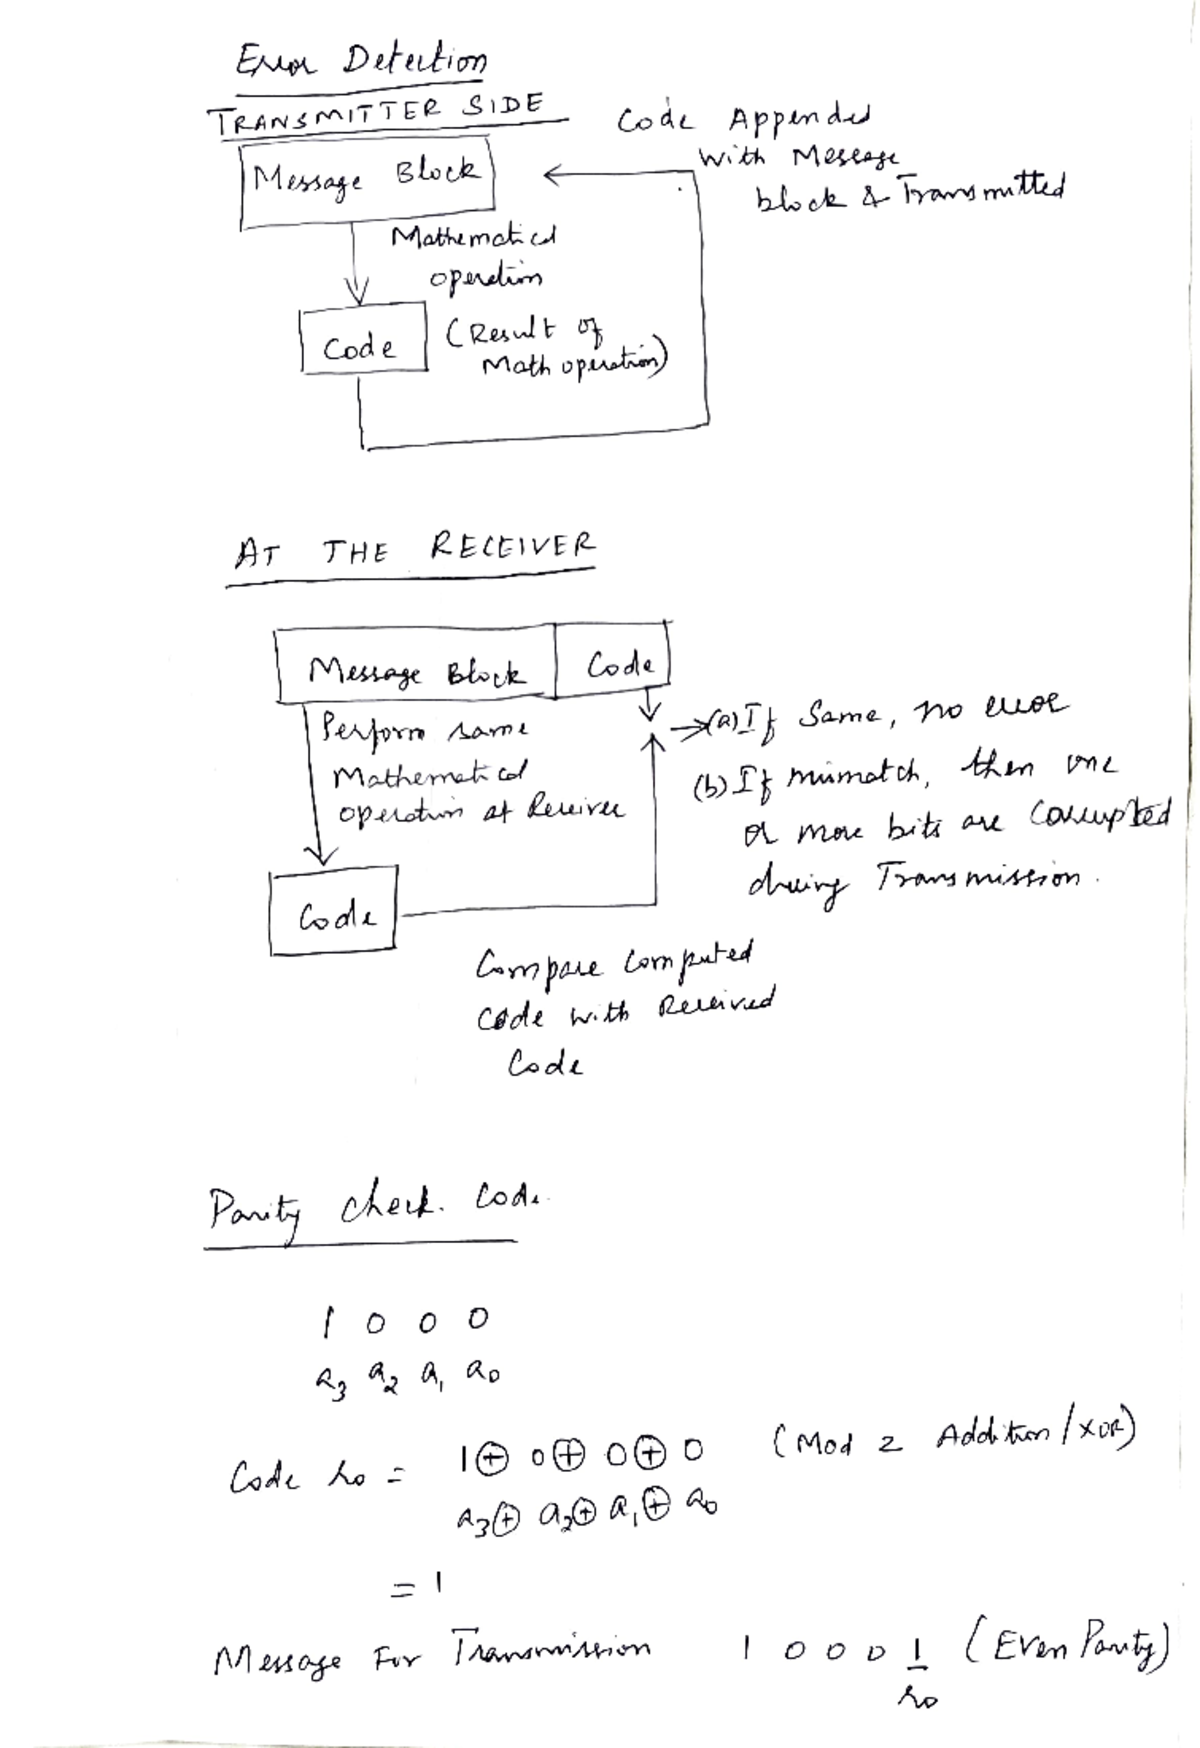 Error Detection
TRANSMITTER SIDE
Message Block
Code Appended
with Message
block & Transmitted
Mathematical
operation
Code
(Result of
Math operation)
AT THE RECEIVER
Message Block
Code
Perform same
Mathematical
operation at Receiver
(a) If Same, no error
(b) If mismatch, then one
or more bits are Corrupted
during Transmission.
Code
Compare Computed
code with Received
Code
Parity check. Code
1 0 0 0
a3 a2 a1 a0
Code r0 = 1 ⊕ 0 ⊕ 0 ⊕ 0 (Mod 2 Addition/XOR)
a3 ⊕ a2 ⊕ a1 ⊕ a0
= 1
Message For Transmission 1 0 0 0 1 (Even Parity)
r0